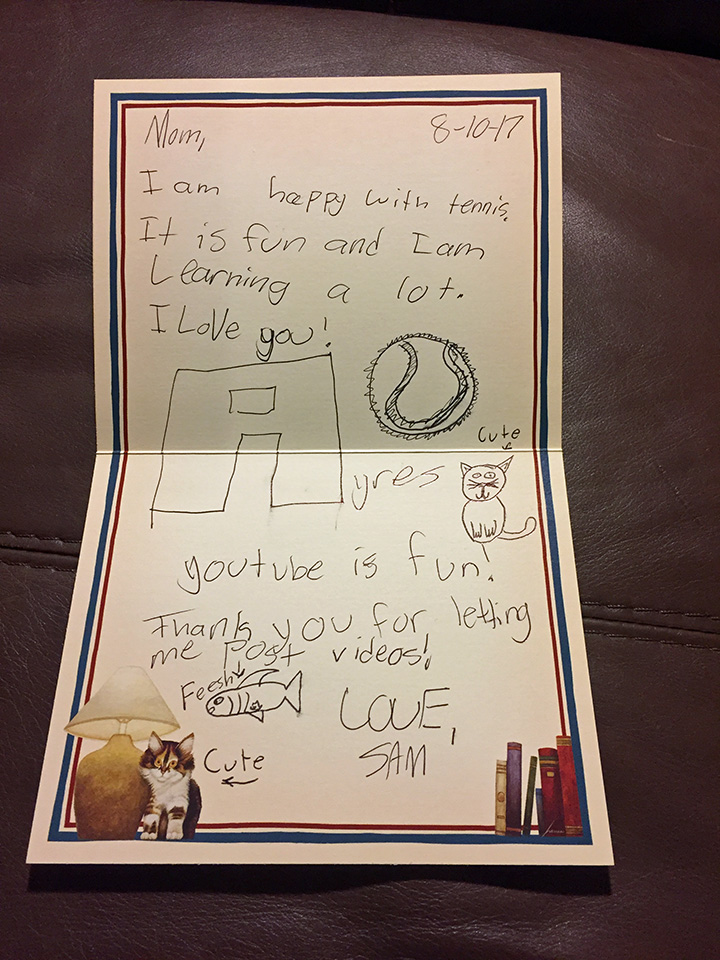 Mom, 8-10-17
I am happy with tennis.
It is fun and I am
Learning a lot.
I Love you!
Cute
Ayres
youtube is fun!
Thank you for letting
me Post videos!
Feesh
LOVE,
SAM
Cute